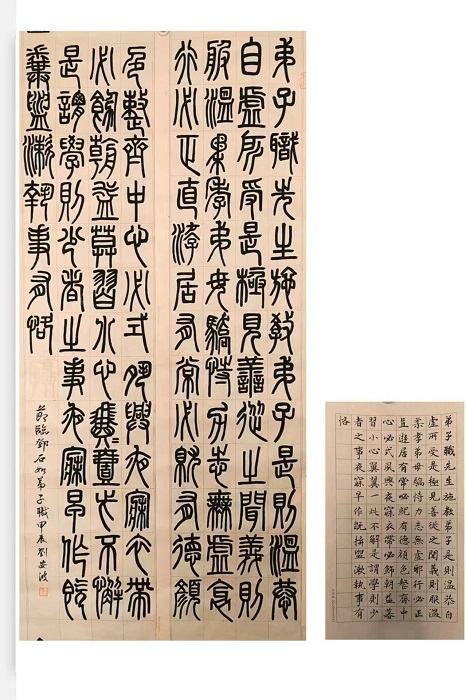 弟子職先生施教弟子是則溫恭
自虛所受是極見善從之聞義則
服溫柔孝弟毋驕恃力志無虛邪
行必正直游居有常必就有德顏
色整齊中心必式夙興夜寐衣帶
必飾朝益莫習小心翼翼一此不懈
是謂學則少者之事夜寐早作既
拚盥漱執事有恪
節臨鄧石如弟子職甲辰劉安波
弟子職先生施教弟子是則溫恭自
虛所受是極見善從之聞義則服溫
柔孝弟毋驕恃力志無虛邪行必正
直遊居有常必就有德顏色整齊中
心必式夙興夜寐衣帶必飾朝益暮
習小心翼翼一此不解是謂學則少
者之事夜寐早作既拚盥漱執事有
恪